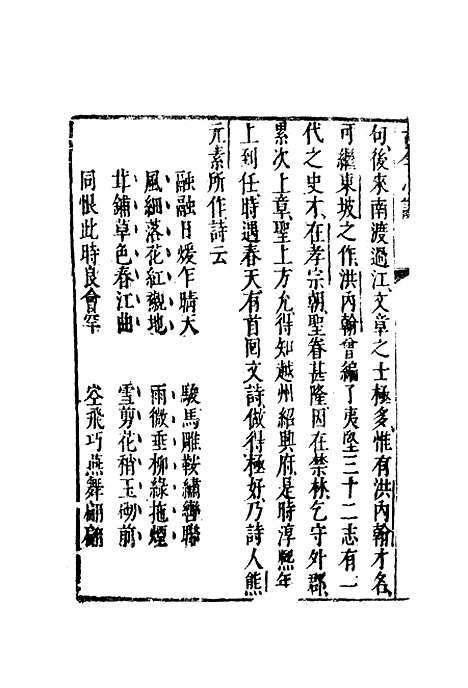 句後來南渡過江文章之士極多惟有洪內翰才名
可繼東坡之作洪內翰曾編了夷堅三十二志有一
代之史才在孝宗朝聖眷甚隆因在禁林乞守外郡
累次上章聖上方允得知越州紹興府是時淳熙年
上到任時遇春天有首回文詩做得極好乃詩人熊
元素所作詩云
融融日煖乍晴天　駿馬雕鞍繡轡聯
風細落花紅襯地　雨微垂柳綠拖煙
茸鋪草色春江曲　雪剪花梢玉砌前
同恨此時良會罕　空飛巧燕舞翩翩